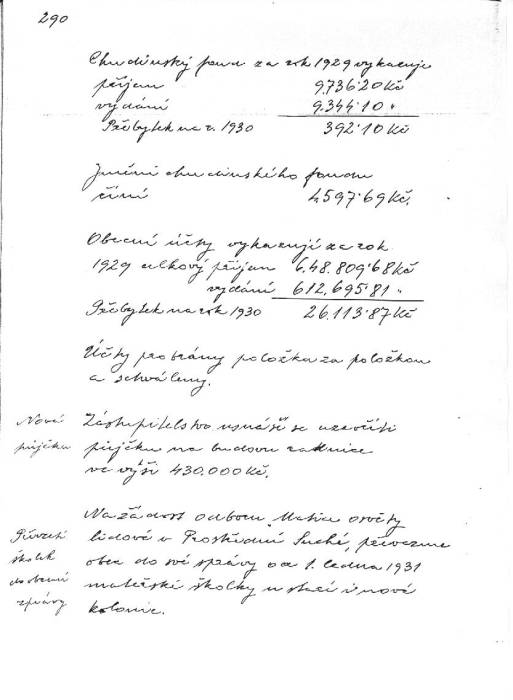 290
Chudinský fond za rok 1929 vykazuje
příjem 9.736·20 Kč
vydání 9.344·10 "
Přebytek na r. 1930 392·10 Kč
Jmění chudinského fondu
činí 4597·69 Kč.
Obecní účty vykazují za rok
1929 celkový příjem 6.48.809·68 Kč
vydání 612,695·81 "
Přebytek na rok 1930 26.113·87 Kč
Účty probrány položka za položkou
a schváleny.
Nová
půjčka
Zastupitelstvo usnáší se uzavříti
půjčku na budovu radnice
ve výši 430.000 Kč.
Převzetí
školek
do obecní
správy
Na žádost odboru Matice osvěty
lidové v Prostřední Suché, převezme
obec do své správy od 1. ledna 1931
mateřské školky v staré i nové
kolonie.